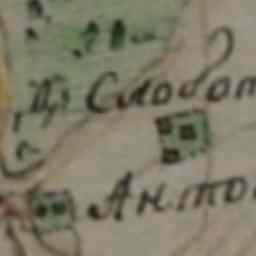 Др Слобот
Анто